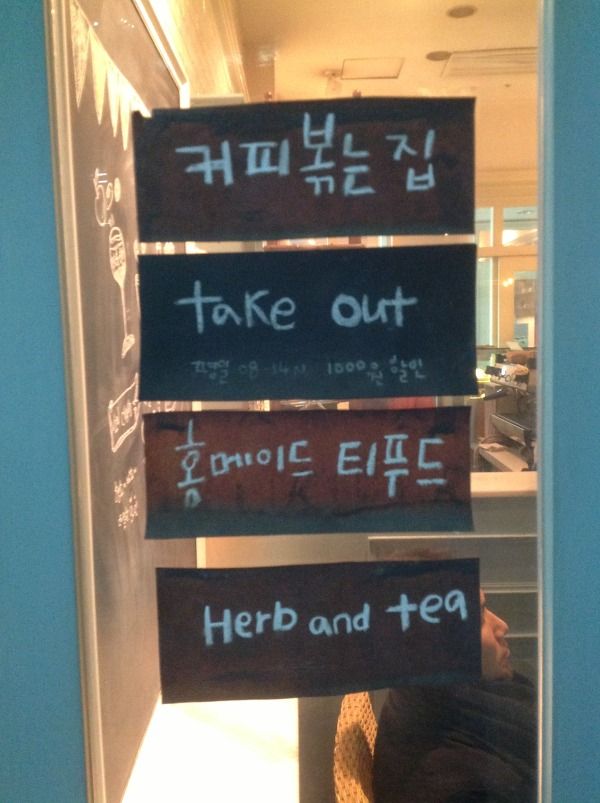 커피볶는집
take out
08-14시 1000원 할인
홈메이드 티푸드
Herb and tea